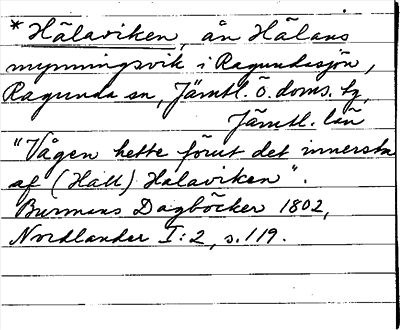 * Hälaviken, ån Hälans
mynningsvik i Ragundasjön,
Ragunda sn, Jämtl. ö. doms. tg,
Jämtl. län
"Vågen hette förut det innersta
af (Häll) Halaviken".
Burmans Dagböcker 1802,
Nordlander I:2, s. 119.